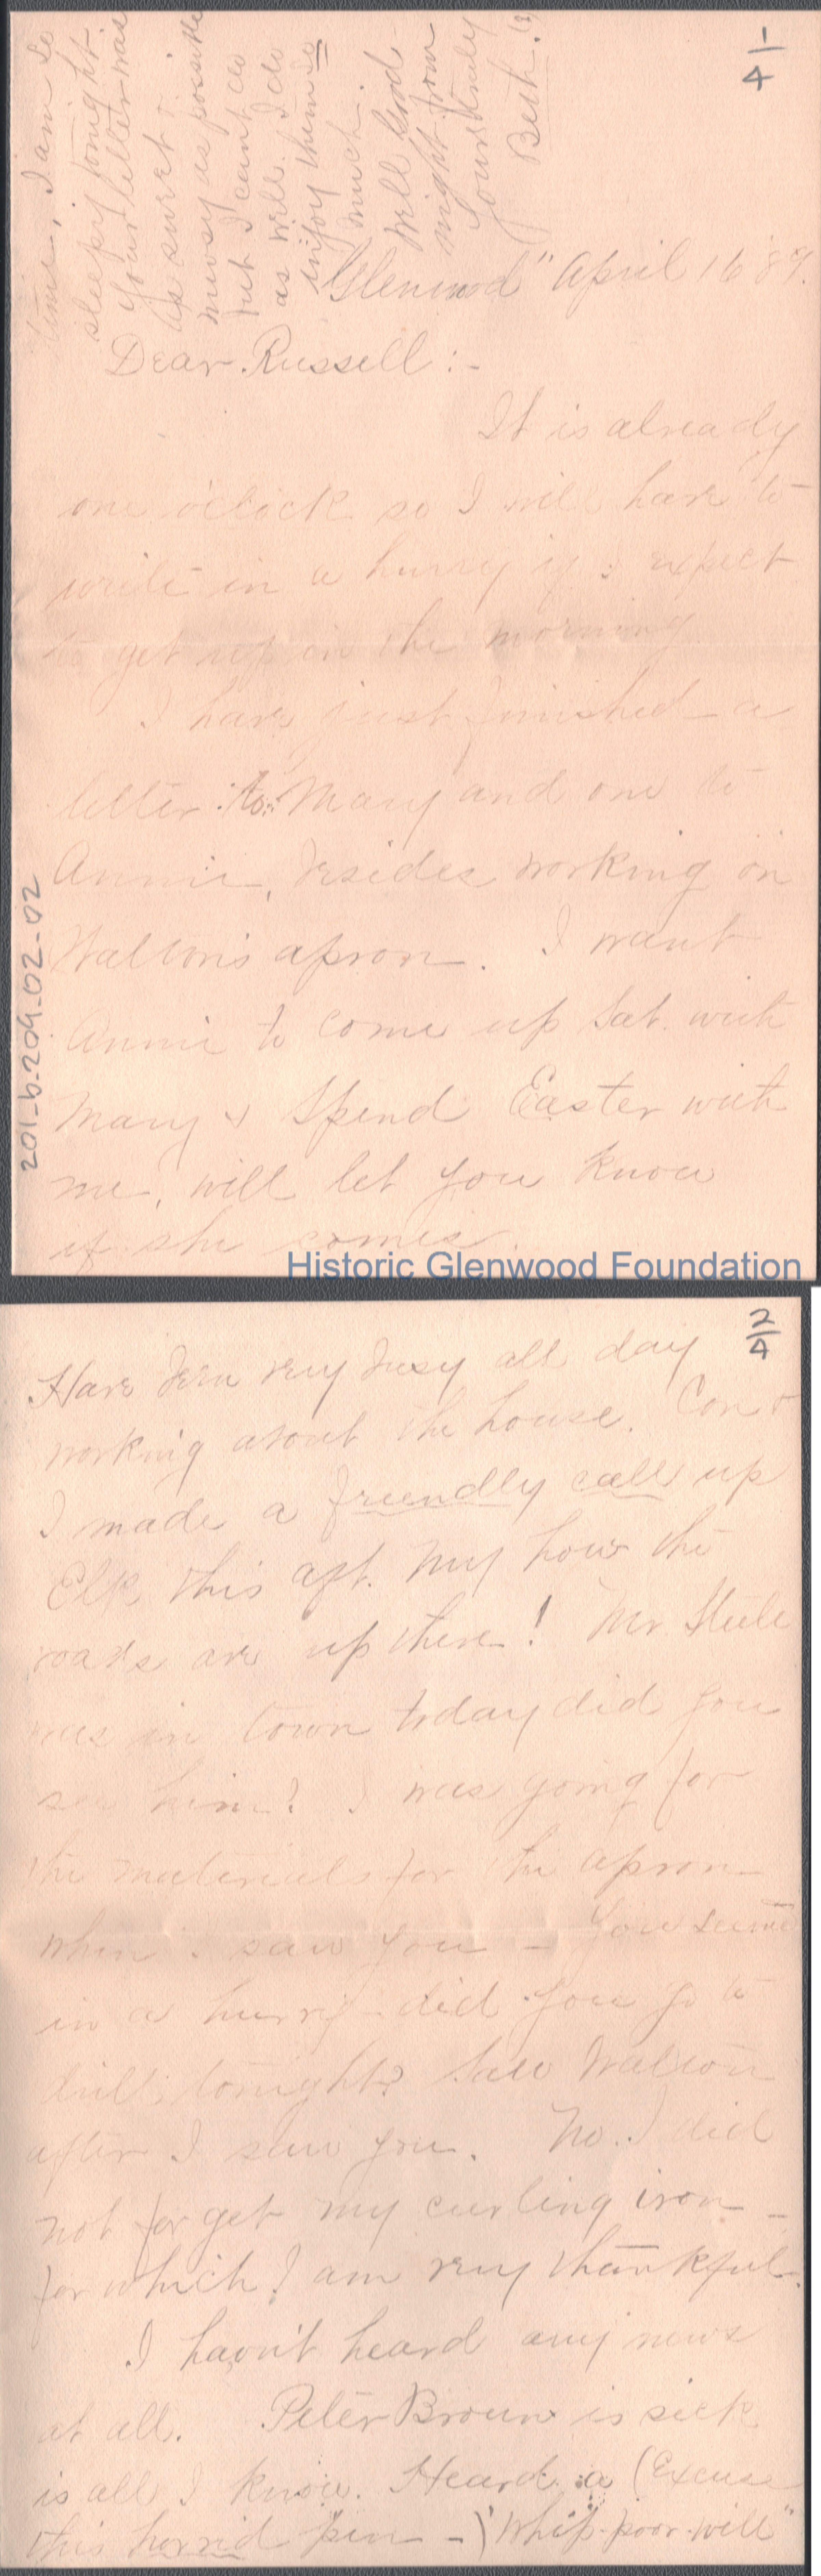 1/4
time, I am so
sleepy tonight.
Your letter was
as sweet &
newsy as possible
but I cant do
as well. I do
enjoy them so
much.
Well Good-
night from
Yours truly
Beth.
"Glenwood" April 16 '89.
Dear Russell:-
It is already
one o'clock so I will have to
write in a hurry if I expect
to get up in the morning.
I have just finished a
letter to Mary and one to
Annie, besides working on
Walton's apron. I want
Annie to come up Sat. with
Mary & spend Easter with
me, will let you know
if she comes.
201-b-209-02-02
Historic Glenwood Foundation
2/4
Have been very busy all day
working about the house. Con &
I made a friendly call up
Elk this aft. My how the
roads are up there! Mr. Steele
was in town today did you
see him? I was going for
the materials for the apron
when I saw you - You seemed
in a hurry - did you go to
drill tonight? Saw Walton
after I saw you. No. I did
not forget my curling iron -
for which I am very thankful.
I havn't heard any news
at all. Peter Broun is sick
is all I know. Heard a (Excuse
this horrid pen -) "Whip-poor-will"